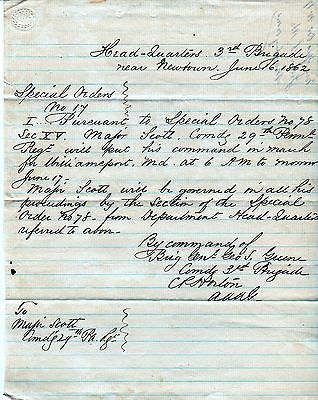 Head-Quarters 3rd Brigade
near Newtown June 16, 1862
Special Orders
No 17
I. Pursuant to Special Orders No 78
Sec XV. Major Scott. Comdg 29th Penn
Regt will put his command in march
for Williamsport, Md. at 6 AM to morrow
June 17-
Major Scott will be governed in all his
proceedings by the Section of the Special
Order No 78- from Department Head-Quarters
referred to above-
By command of
Brig Genl Geo S. Greene
Comdg 3rd Brigade
C P Horton
AAAG
To
Major Scott
Comdg 29th Pa. Rgt